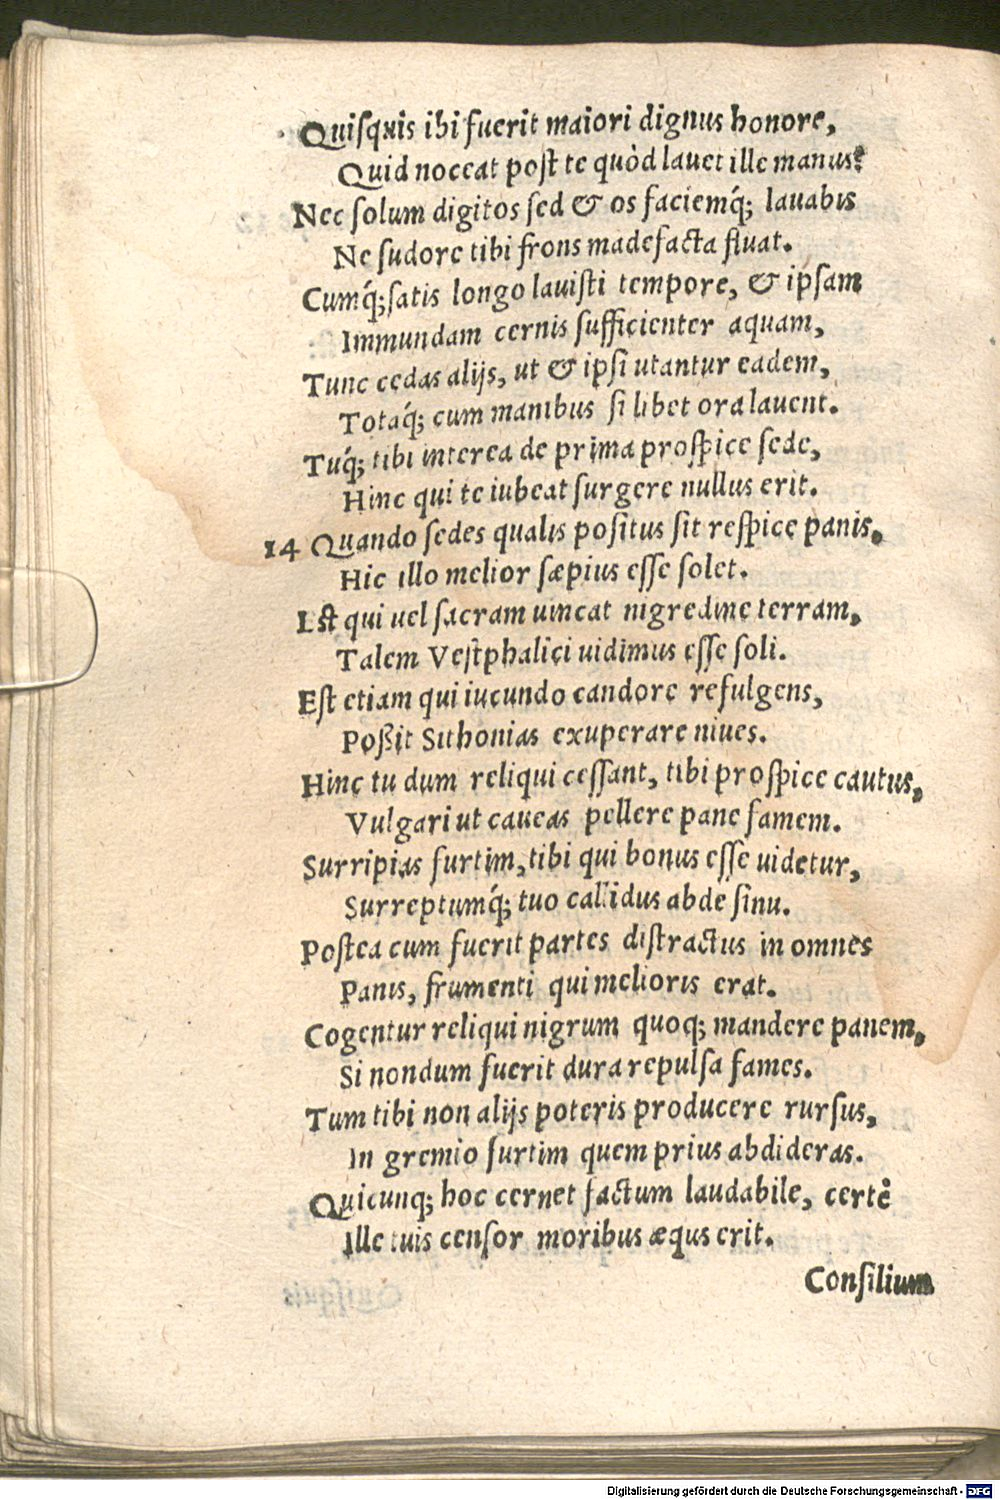 Quiſquis ibi fuerit maiori dignus honore,
Quid noceat poſt te quòd lauet ille manus?
Nec ſolum digitos ſed & os faciemq́; lauabis
Ne ſudore tibi frons madefacta fluat.
Cumq́; ſatis longo lauiſti tempore, & ipſam
Immundam cernis ſufficienter aquam,
Tunc cedas alijs, ut & ipſi utantur eadem,
Totaq́; cum manibus ſi libet ora lauent.
Tuq́; tibi interea de prima proſpice ſede,
Hinc qui te iubeat ſurgere nullus erit.
14 Quando ſedes qualis poſitus ſit reſpice panis,
Hic illo melior sæpius eſſe ſolet.
Eſt qui uel ſacram uincat nigredine terram,
Talem Veſtphalici uidimus eſſe ſoli.
Eſt etiam qui iucundo candore refulgens,
Poßit Sithonias exuperare niues.
Hinc tu dum reliqui ceſſant, tibi proſpice cautus,
Vulgari ut caueas pellere pane famem.
Surripias furtim, tibi qui bonus eſſe uidetur,
Surreptumq́; tuo callidus abde ſinu.
Poſtea cum fuerit partes diſtractus in omnes
Panis, frumenti qui melioris erat.
Cogentur reliqui nigrum quoq; mandere panem,
Si nondum fuerit dura repulſa fames.
Tum tibi non alijs poteris producere rurſus,
In gremio furtim quem prius abdideras.
Quicunq; hoc cernet factum laudabile, certè
Ille tuis cenſor moribus æqus erit.
Conſilium
Digitalisierung gefördert durch die Deutsche Forschungsgemeinschaft - DFG